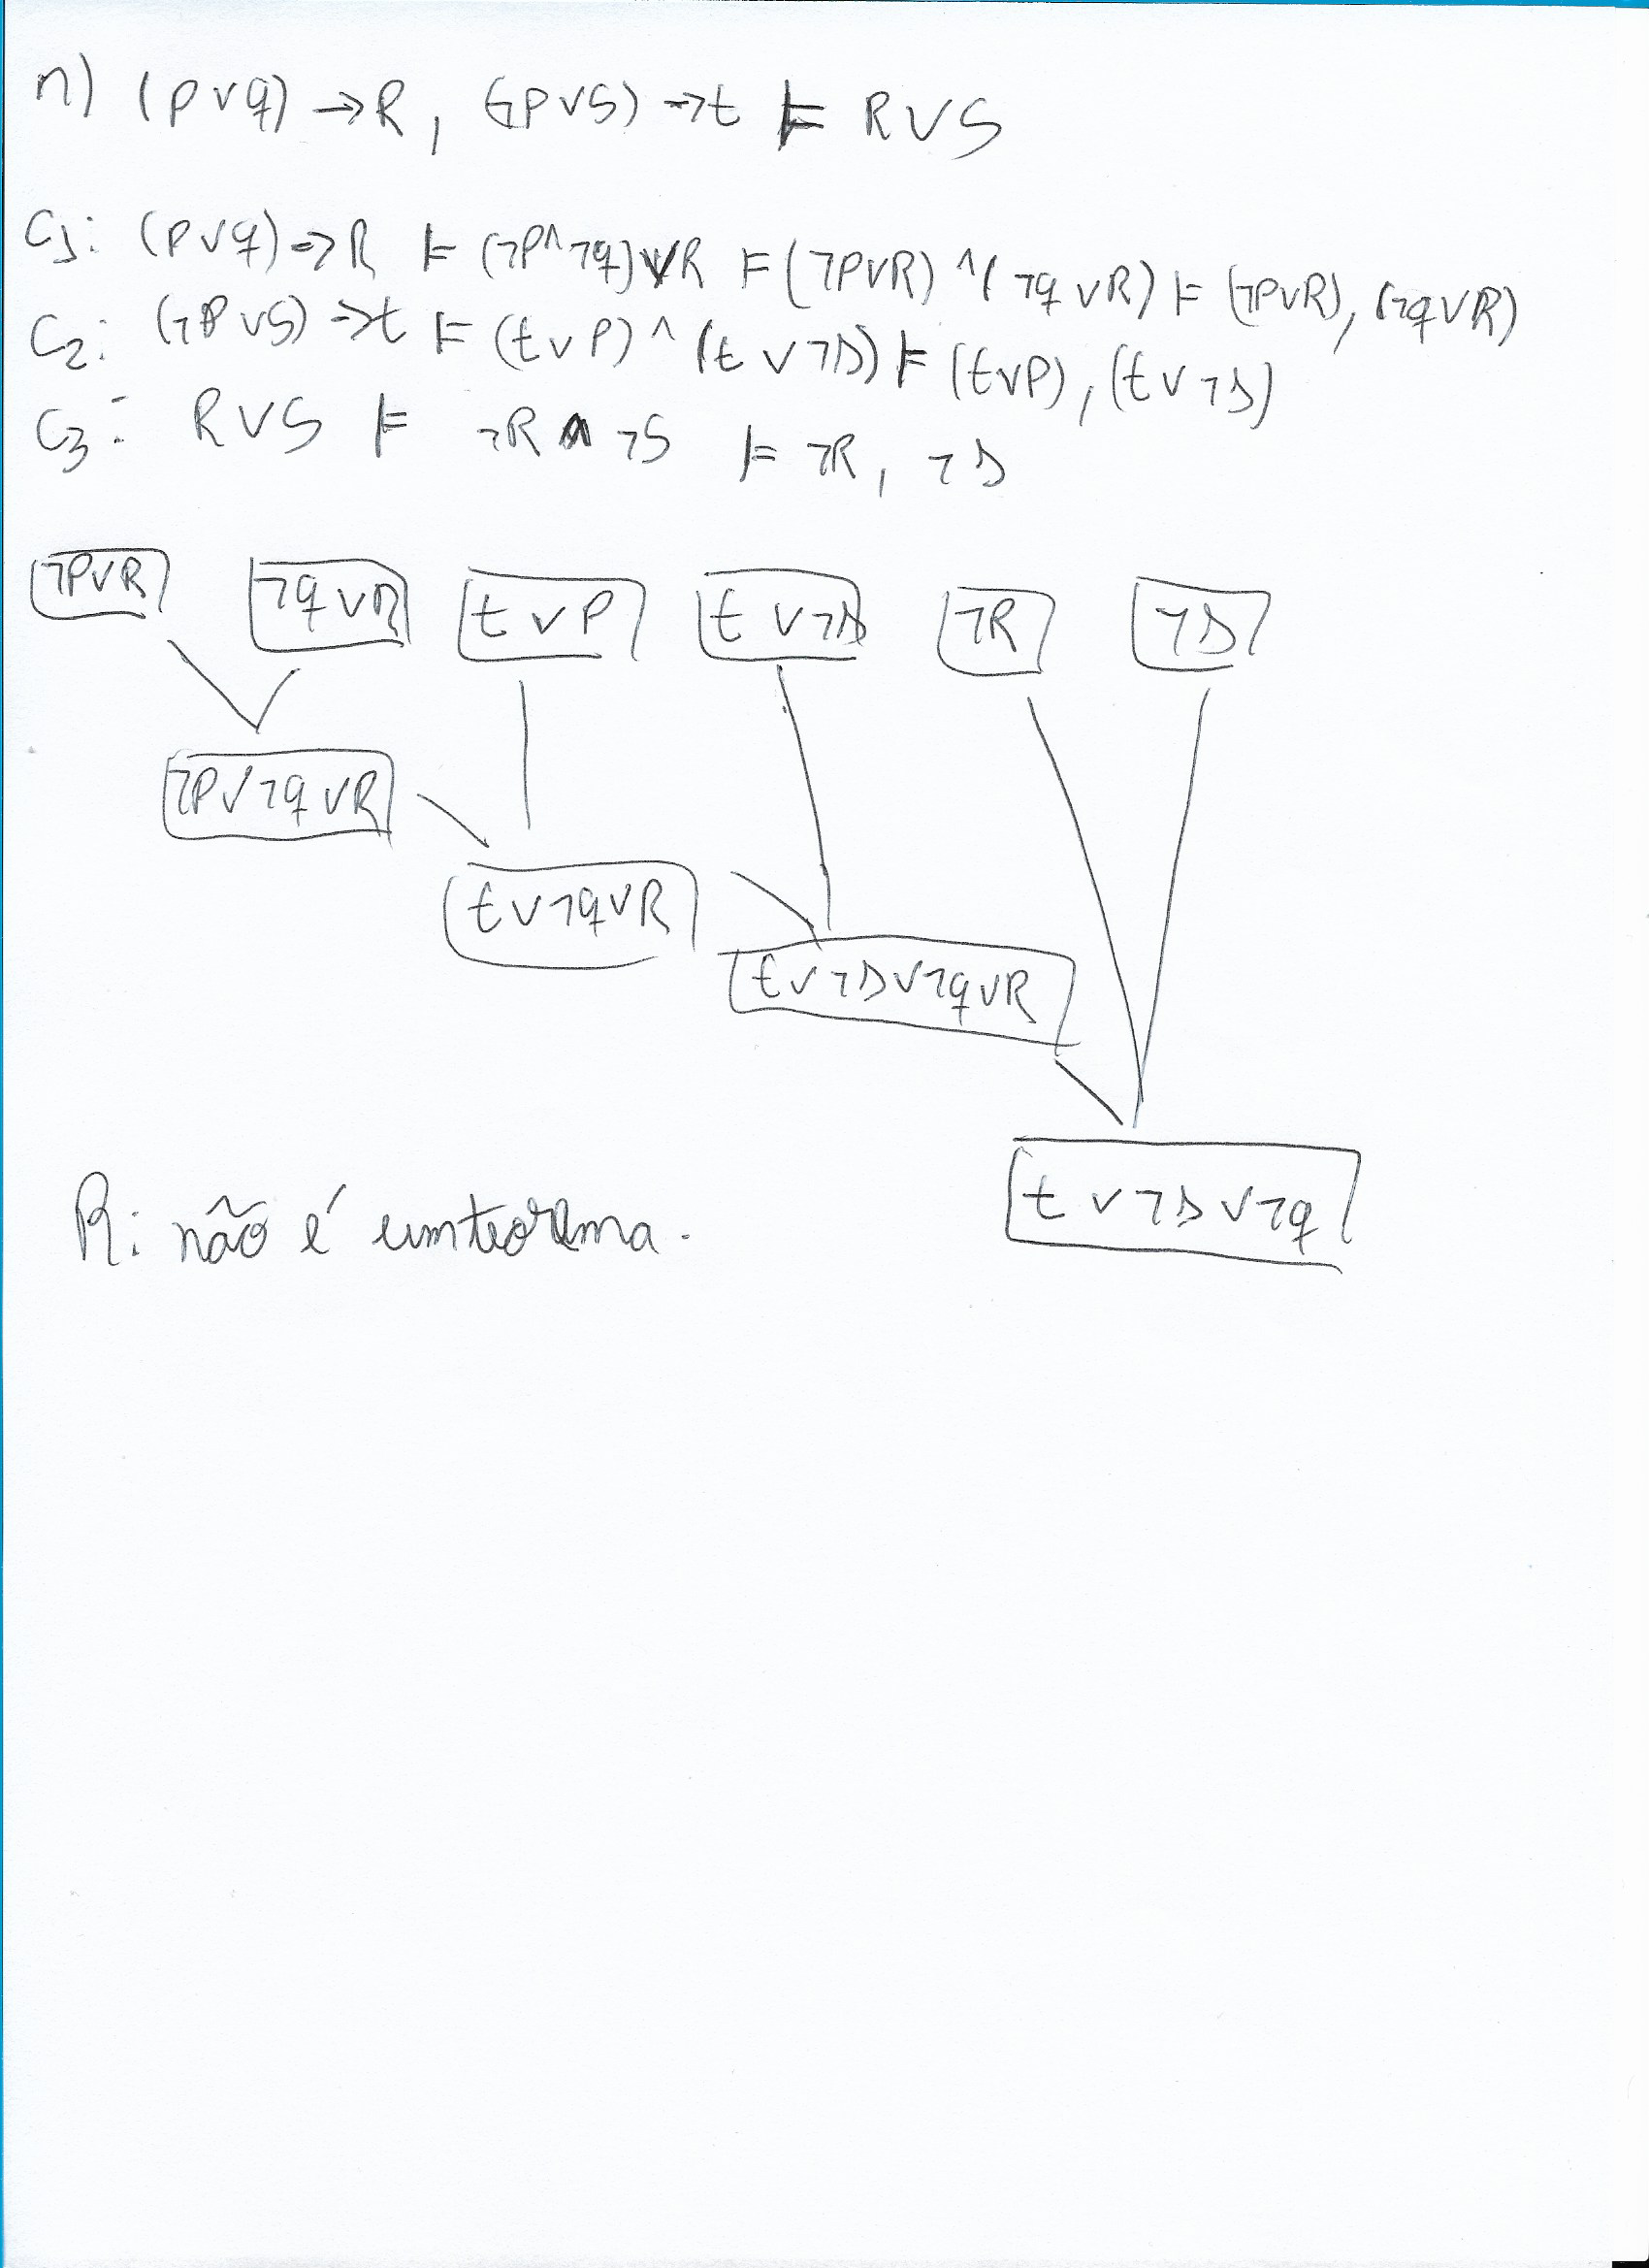 n) (p ∨ q) → R, (¬P ∨ S) → t ⊨ R ∨ S
C1: (P ∨ q) → R ⊨ (¬P ∧ ¬q) ∨ R ⊨ (¬P ∨ R) ∧ (¬q ∨ R) ⊨ (¬P ∨ R), (¬q ∨ R)
C2: (¬P ∨ S) → t ⊨ (t ∨ P) ∧ (t ∨ ¬s) ⊨ (t ∨ P), (t ∨ ¬s)
C3: R ∨ S ⊨ ¬R ∧ ¬S ⊨ ¬R, ¬s
¬P ∨ R ¬q ∨ R t ∨ P t ∨ ¬s ¬R ¬s
¬P ∨ ¬q ∨ R
t ∨ ¬q ∨ R
t ∨ ¬s ∨ ¬q ∨ R
t ∨ ¬s ∨ ¬q
R: não é um teorema.